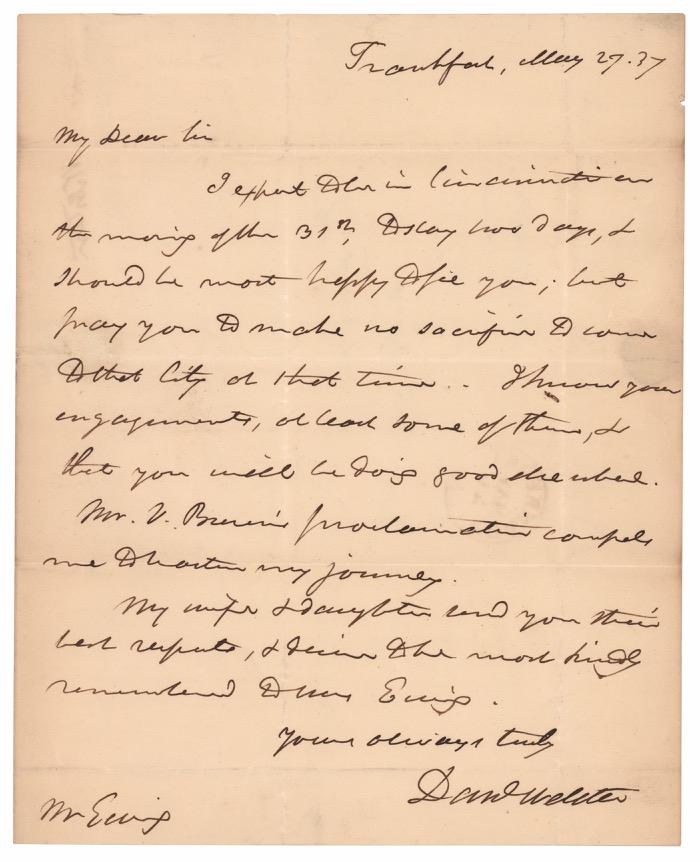 Frankfort, May 27. 37
My Dear Sir
I expect to be in Cincinnati on
the morning of the 31st, to stay two days, &
should be most happy to see you; but
pray you to make no sacrifice to come
to that City at that time.. I know your
engagements, at least some of them, &
that you will be doing good elsewhere.
Mr. V. Buren's proclamation compels
me to hasten my journey.
My wife & daughter send you their
best respects, & desire to be most kindly
remembered to Mrs Ewing.
Yours always truly
Danl Webster
Mr Ewing